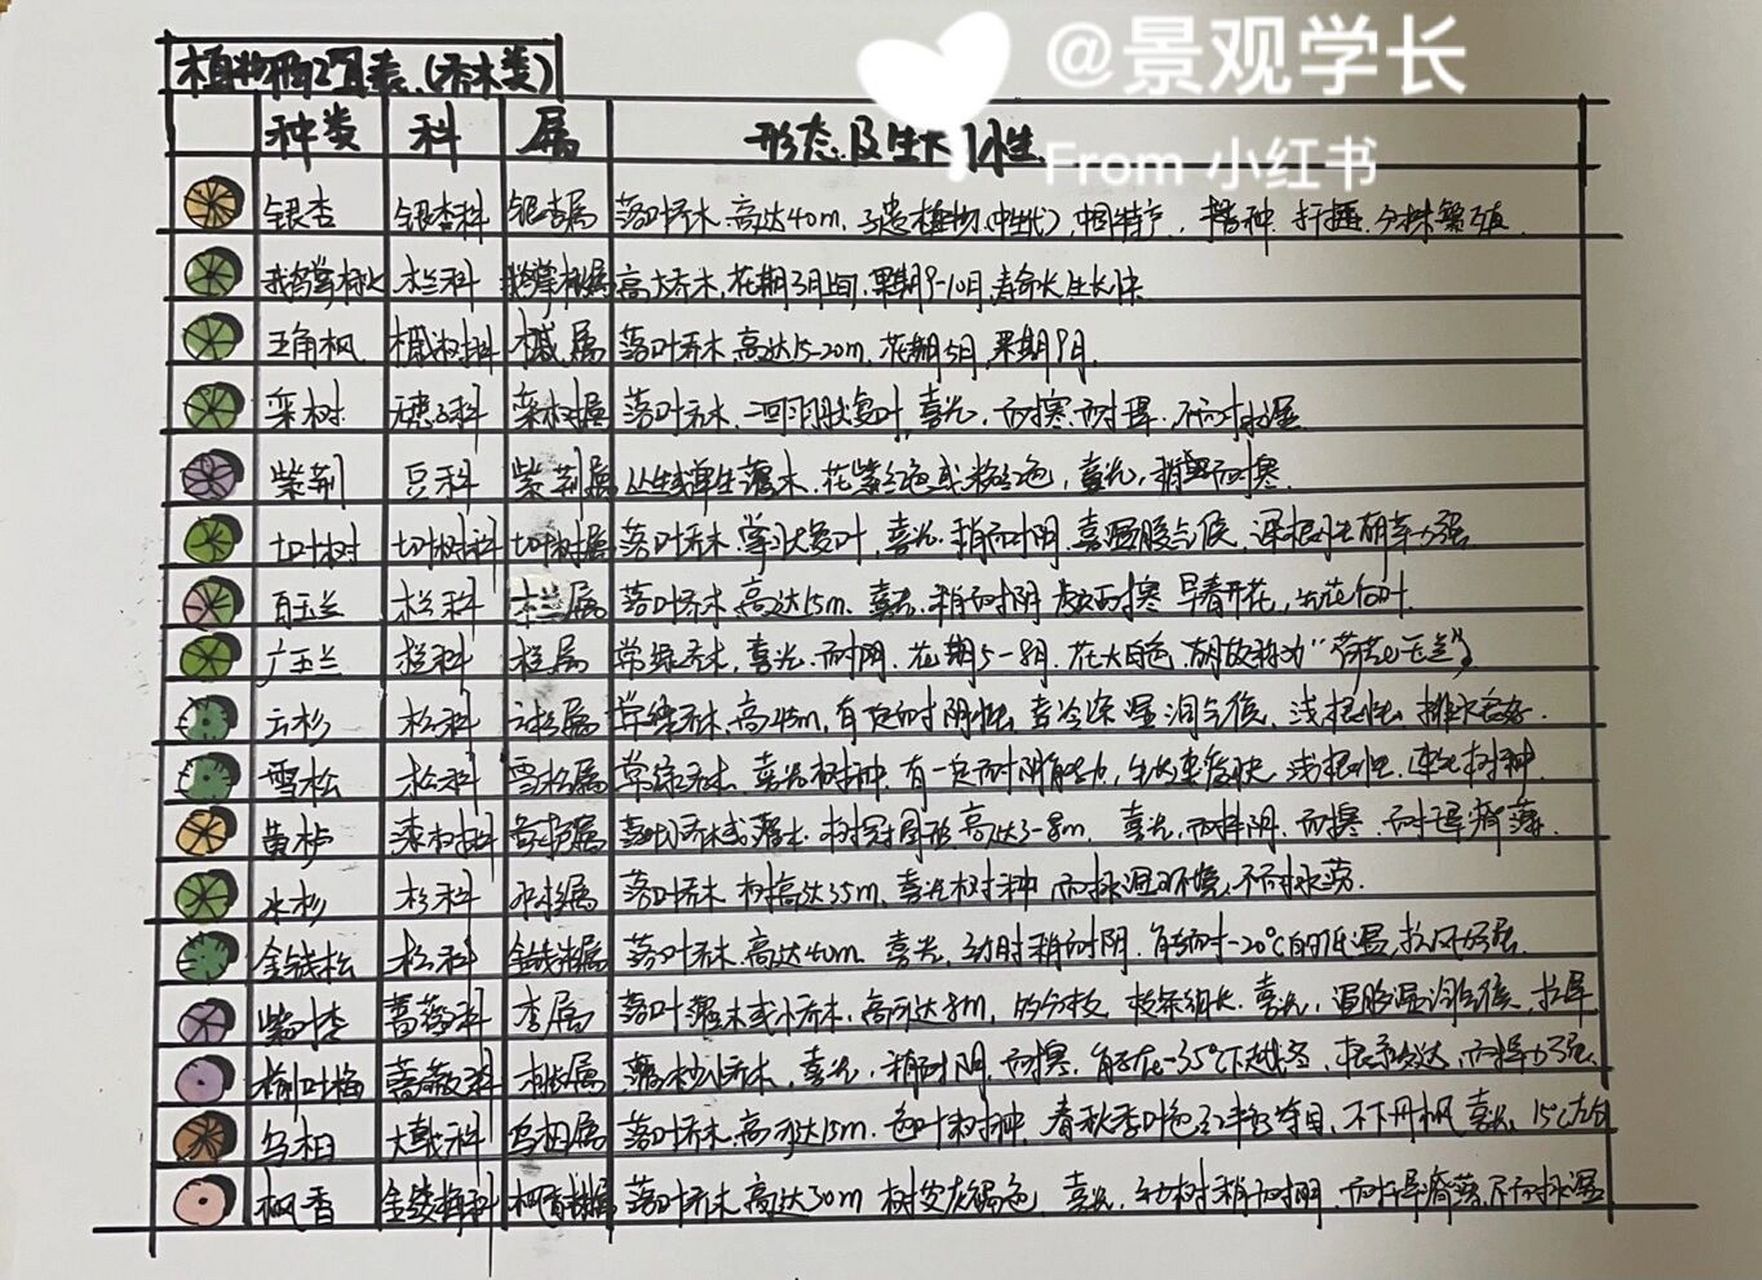 @景观学长
From 小红书
植物配置表(乔木类)
种类 科 属 形态及生长习性
银杏 银杏科 银杏属 落叶乔木,高达40m,孑遗植物(中生代),中国特产,播种 扦插,分株繁殖
鹅掌楸 木兰科 鹅掌楸属 高大乔木,花期3月上旬,果期9-10月,寿命长生长快
五角枫 槭树科 槭属 落叶乔木,高达15-20m,花期5月,果期9月
栾树 无患子科 栾树属 落叶乔木,二回羽状复叶,喜光,耐寒,耐旱,不耐水湿
紫荆 豆科 紫荆属 丛生或单生灌木,花紫红色或粉红色,喜光,稍耐寒
七叶树 七叶树科 七叶树属 落叶乔木,掌状复叶,喜光,稍耐阴,喜温暖气候,深根性萌芽力强
白玉兰 木兰科 木兰属 落叶乔木,高达15m,喜光,稍耐阴 颇耐寒 早春开花,先花后叶
广玉兰 木兰科 木兰属 常绿乔木,喜光,耐阴,花期5-8月,花大白色,故称为"荷花玉兰"
云杉 松科 云杉属 常绿乔木,高45m,有一定耐阴性,喜冷凉湿润气候,浅根性,排水良好.
雪松 松科 雪松属 常绿乔木,喜光树种,有一定耐阴能力,生长速度快,浅根性,速生树种.
黄栌 漆树科 黄栌属 落叶乔木或灌木,树冠圆形,高达3-8m,喜光,耐半阴,耐寒,耐干旱瘠薄.
水杉 杉科 水杉属 落叶乔木 树高达35m,喜光树种 耐水湿环境,不耐水涝.
金钱松 松科 金钱松属 落叶乔木,高达40m,喜光,幼时稍耐阴,能耐-20℃的低温,抗风力强.
紫叶李 蔷薇科 李属 落叶灌木或小乔木,高可达8m,多分枝,枝条细长,喜光,温暖湿润气候,抗旱
榆叶梅 蔷薇科 桃属 灌木稀小乔木,喜光,稍耐阴,耐寒,能在-35℃下越冬,根系发达,耐旱力强.
乌桕 大戟科 乌桕属 落叶乔木,高可达15m,色叶树种,春秋季叶色红艳夺目,不下丹枫 喜光,15℃左右
枫香 金缕梅科 枫香树属 落叶乔木,高达30m 树皮灰褐色,喜光,幼树稍耐阴,耐干旱瘠薄,不耐水湿